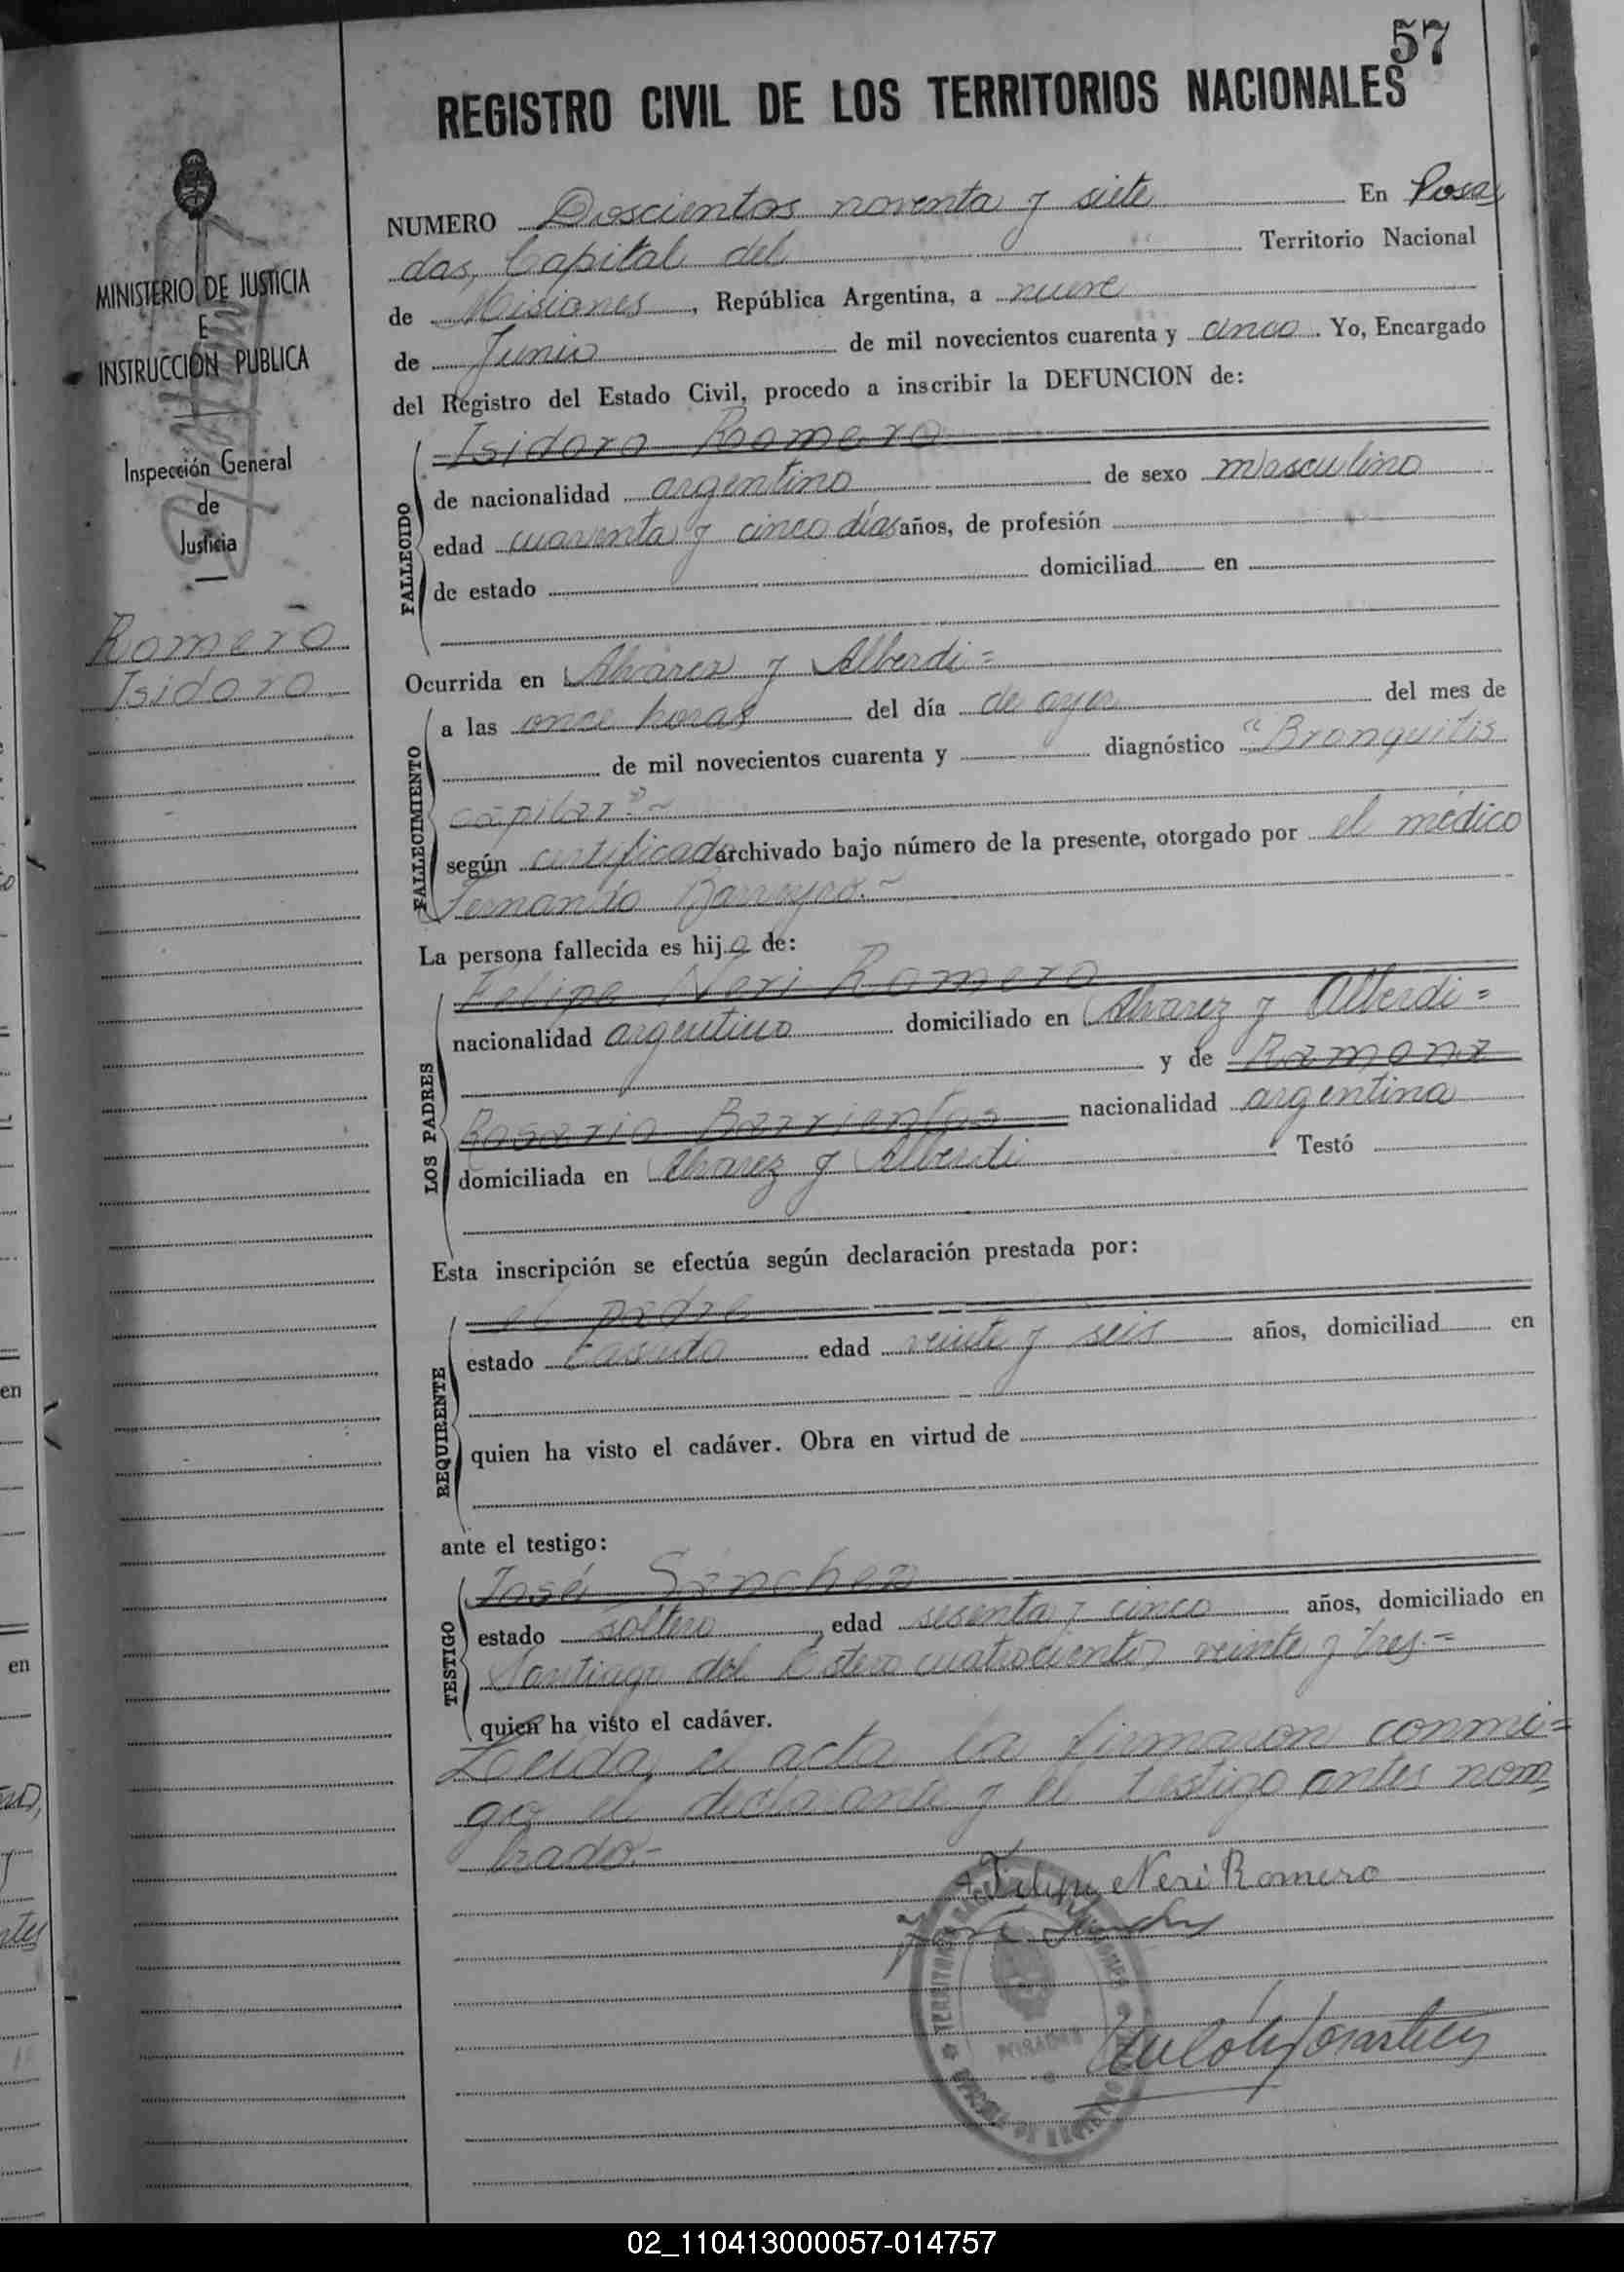 57
REGISTRO CIVIL DE LOS TERRITORIOS NACIONALES
MINISTERIO DE JUSTICIA
E
INSTRUCCIÓN PUBLICA
Inspección General
de
Justicia
Romero
Isidoro
NUMERO Doscientos noventa y siete En Posa
das, Capital del Territorio Nacional
de Misiones, República Argentina, a nueve
de Junio de mil novecientos cuarenta y cinco. Yo, Encargado
del Registro del Estado Civil, procedo a inscribir la DEFUNCION de:
FALLECIDO
Isidoro Romero
de nacionalidad argentino de sexo masculino
edad cuarenta y cinco días años, de profesión
de estado domiciliad en
Ocurrida en Alvarez y Alberdi=
FALLECIMIENTO
a las once horas del día de ayer del mes de
de mil novecientos cuarenta y diagnóstico "Bronquitis
capilar".-
según certificado archivado bajo número de la presente, otorgado por el médico
Fernando Barreyro.-
La persona fallecida es hijo de:
LOS PADRES
Felipe Neri Romero
nacionalidad argentino domiciliado en Alvarez y Alberdi=
y de Ramona
Rosario Barrientos nacionalidad argentina
domiciliada en Alvarez y Alberdi. Testó
Esta inscripción se efectúa según declaración prestada por:
REQUIRENTE
el padre
estado casado edad veinte y seis años, domiciliad en
quien ha visto el cadáver. Obra en virtud de
ante el testigo:
TESTIGO
José Sánchez
estado soltero, edad sesenta y cinco años, domiciliado en
Santiago del Estero cuatrocientos veinte y tres.=
quien ha visto el cadáver.
Leída el acta la firmaron conmi=
go el declarante y el testigo antes nom
brado.-
Felipe Neri Romero
José Sanchez
POSADAS
02_110413000057-014757